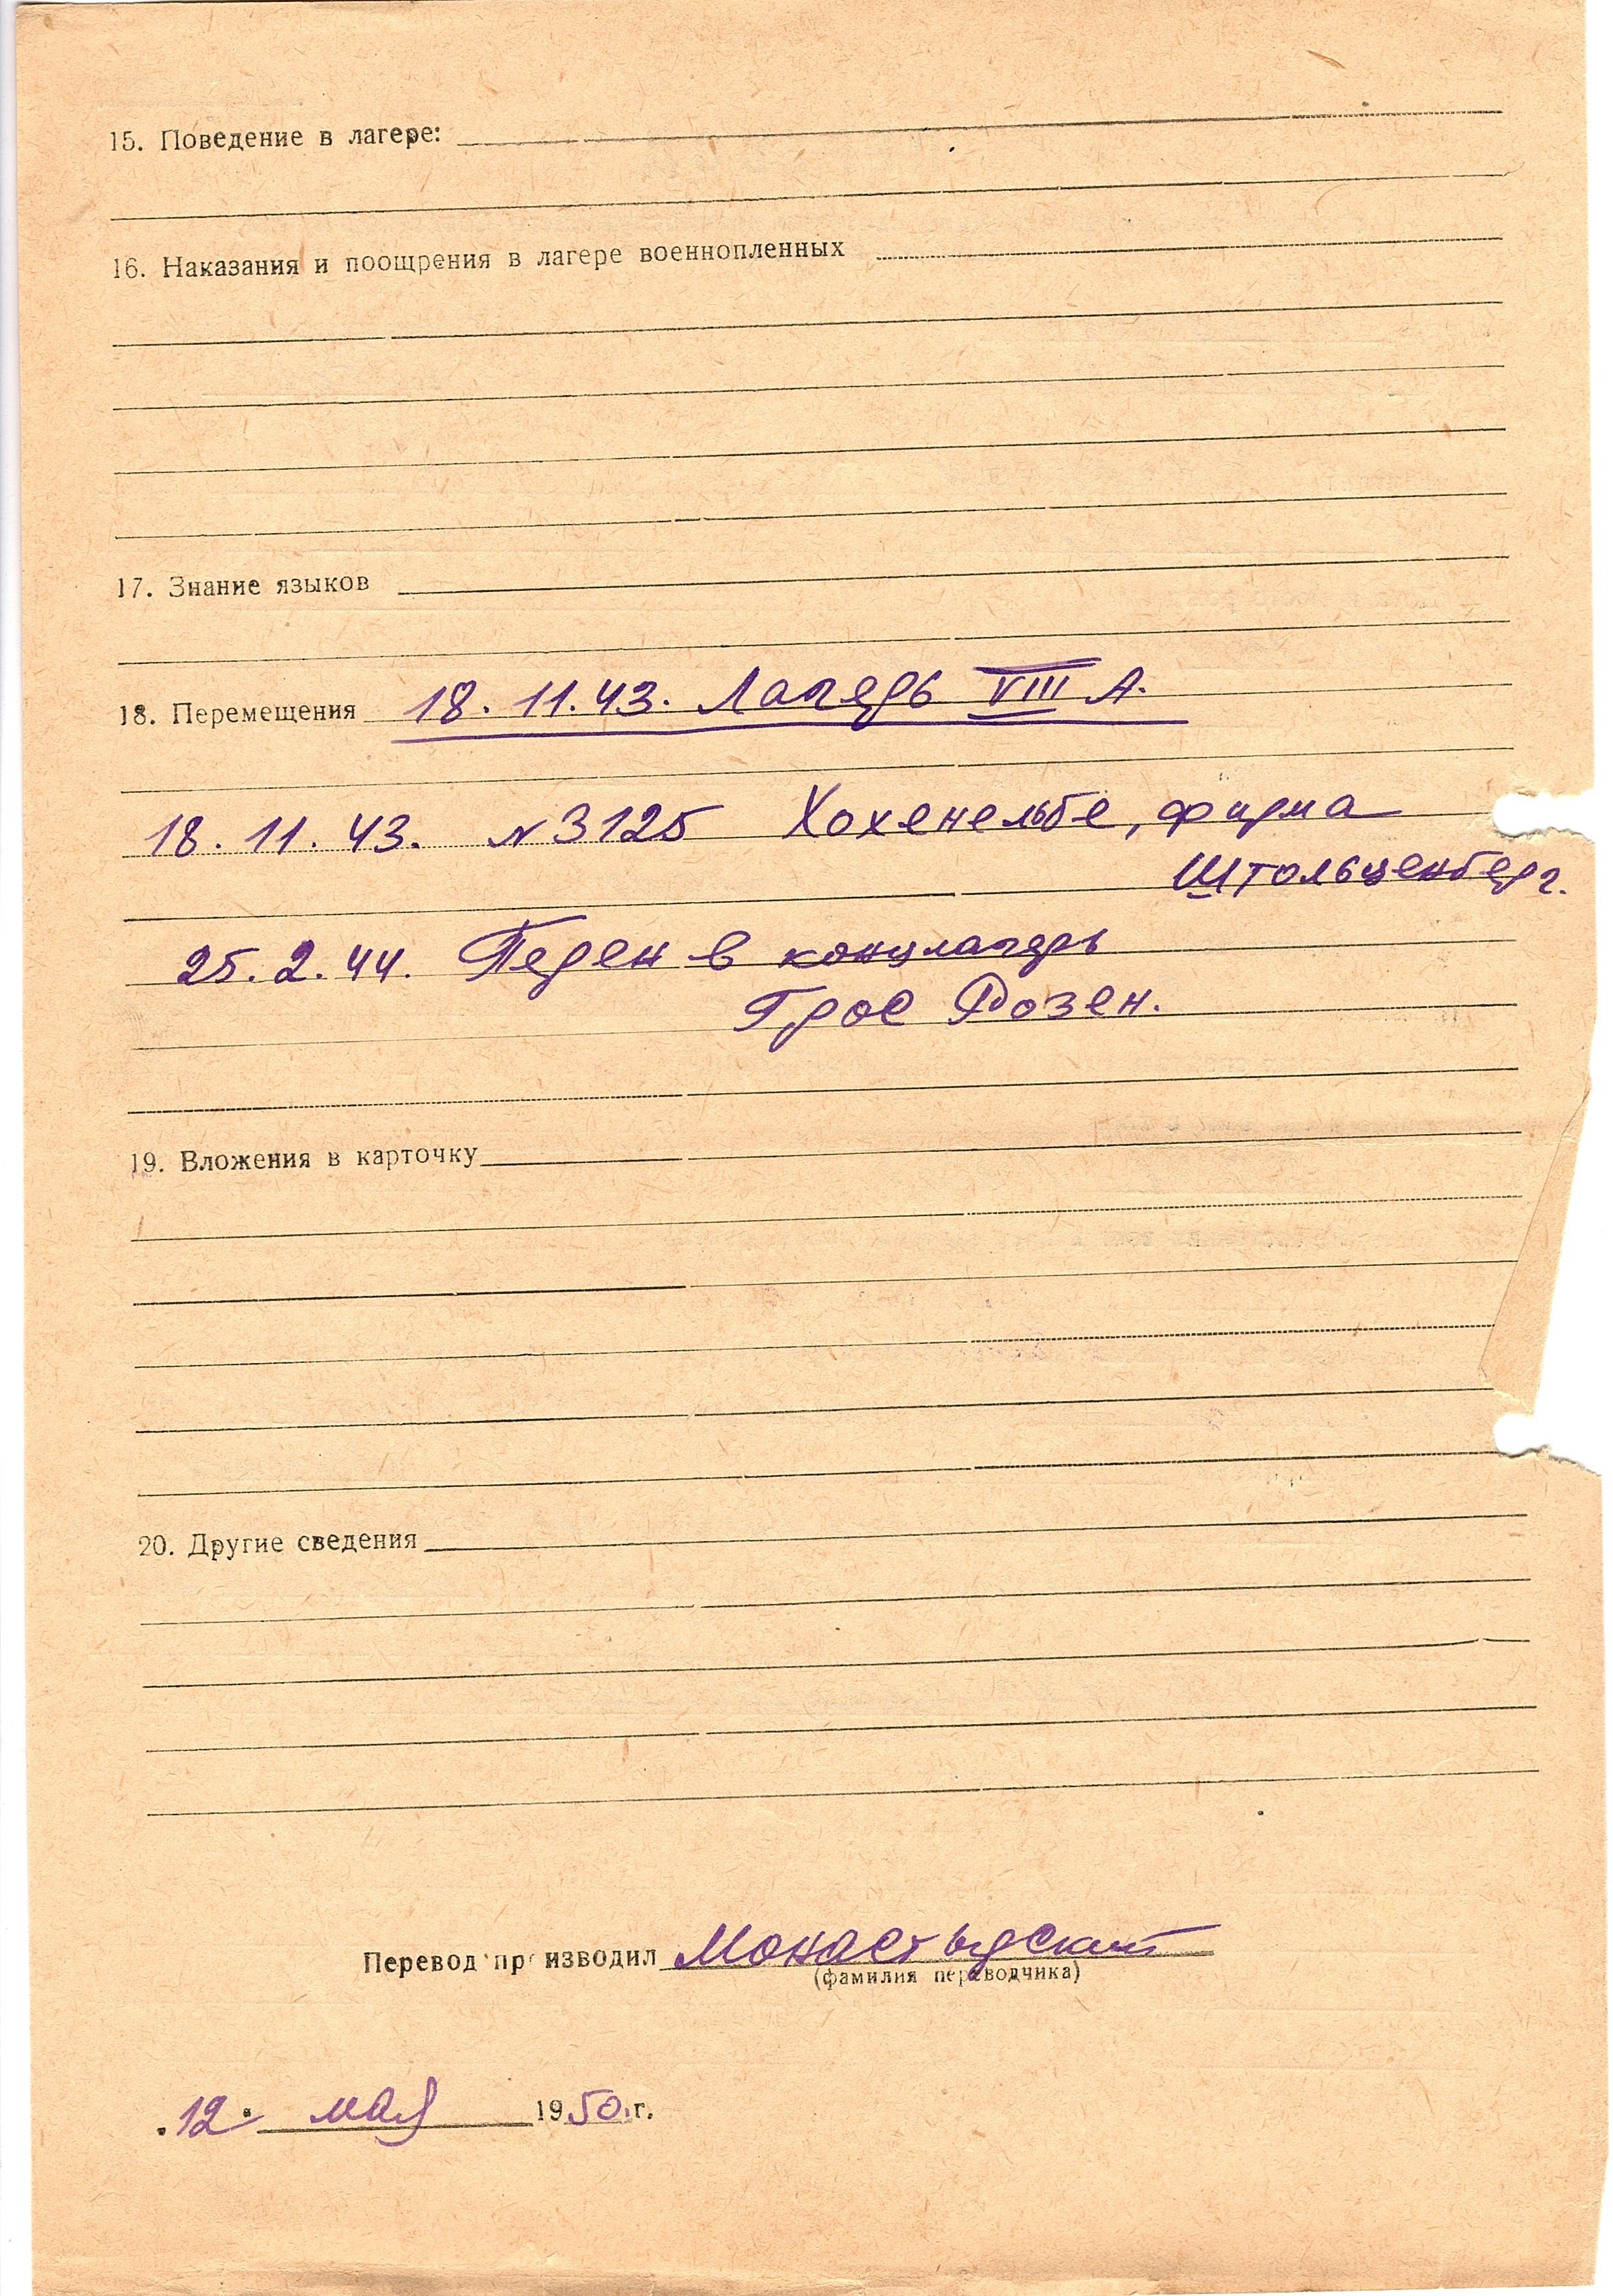 15. Поведение в лагере:
16. Наказания и поощрения в лагере военнопленных
17. Знание языков
18. Перемещения 18.11.43. Лагерь VIII А.
18.11.43. N 3125 Хохенельбе, фирма
Штольценберг.
25.2.44. Переден в концлагерь
Грос Розен.
19. Вложения в карточку
20. Другие сведения
Перевод производил Монастырский
(фамилия переводчика)
"12" мая 1950 г.